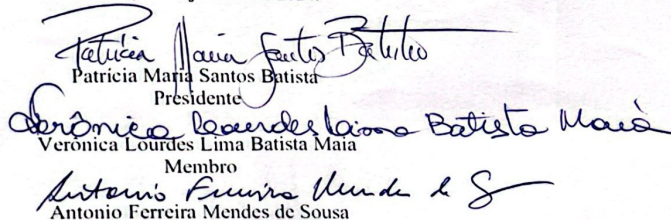 Patrícia Maria Santos Batista
Patrícia Maria Santos Batista
Presidente
Verônica Lourdes Lima Batista Maia
Verônica Lourdes Lima Batista Maia
Membro
Antonio Ferreira Mendes de S
Antonio Ferreira Mendes de Sousa